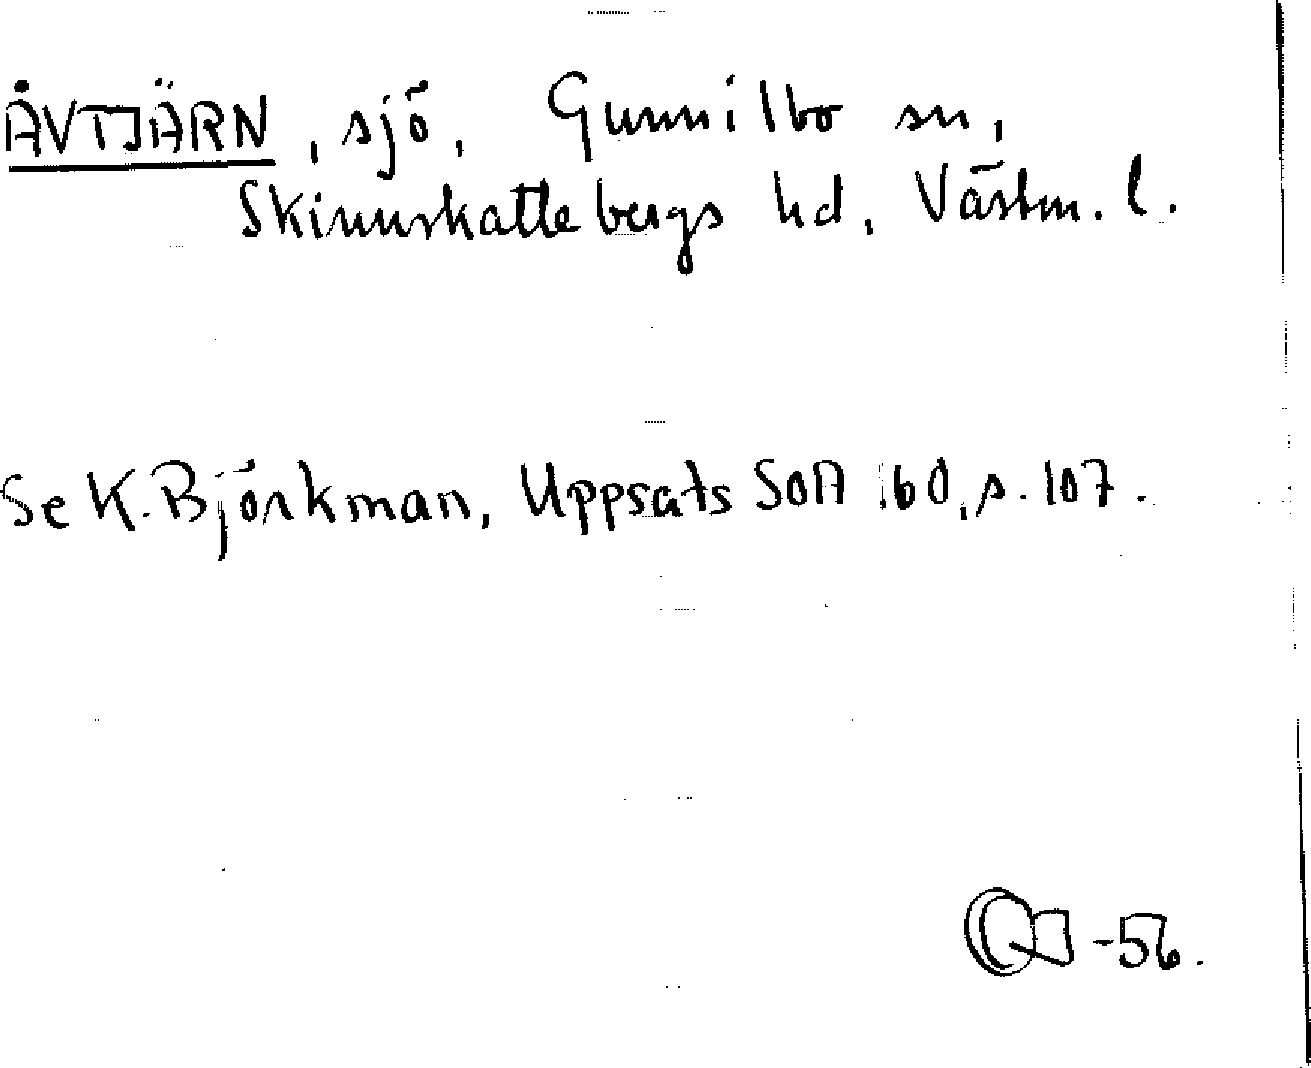 ÅVTJÄRN, sjö, Gunnilbo sn,
Skinnskattebergs hd, Västm. l.
Se K. Björkman, Uppsats SOA :60, s. 107.
-56.